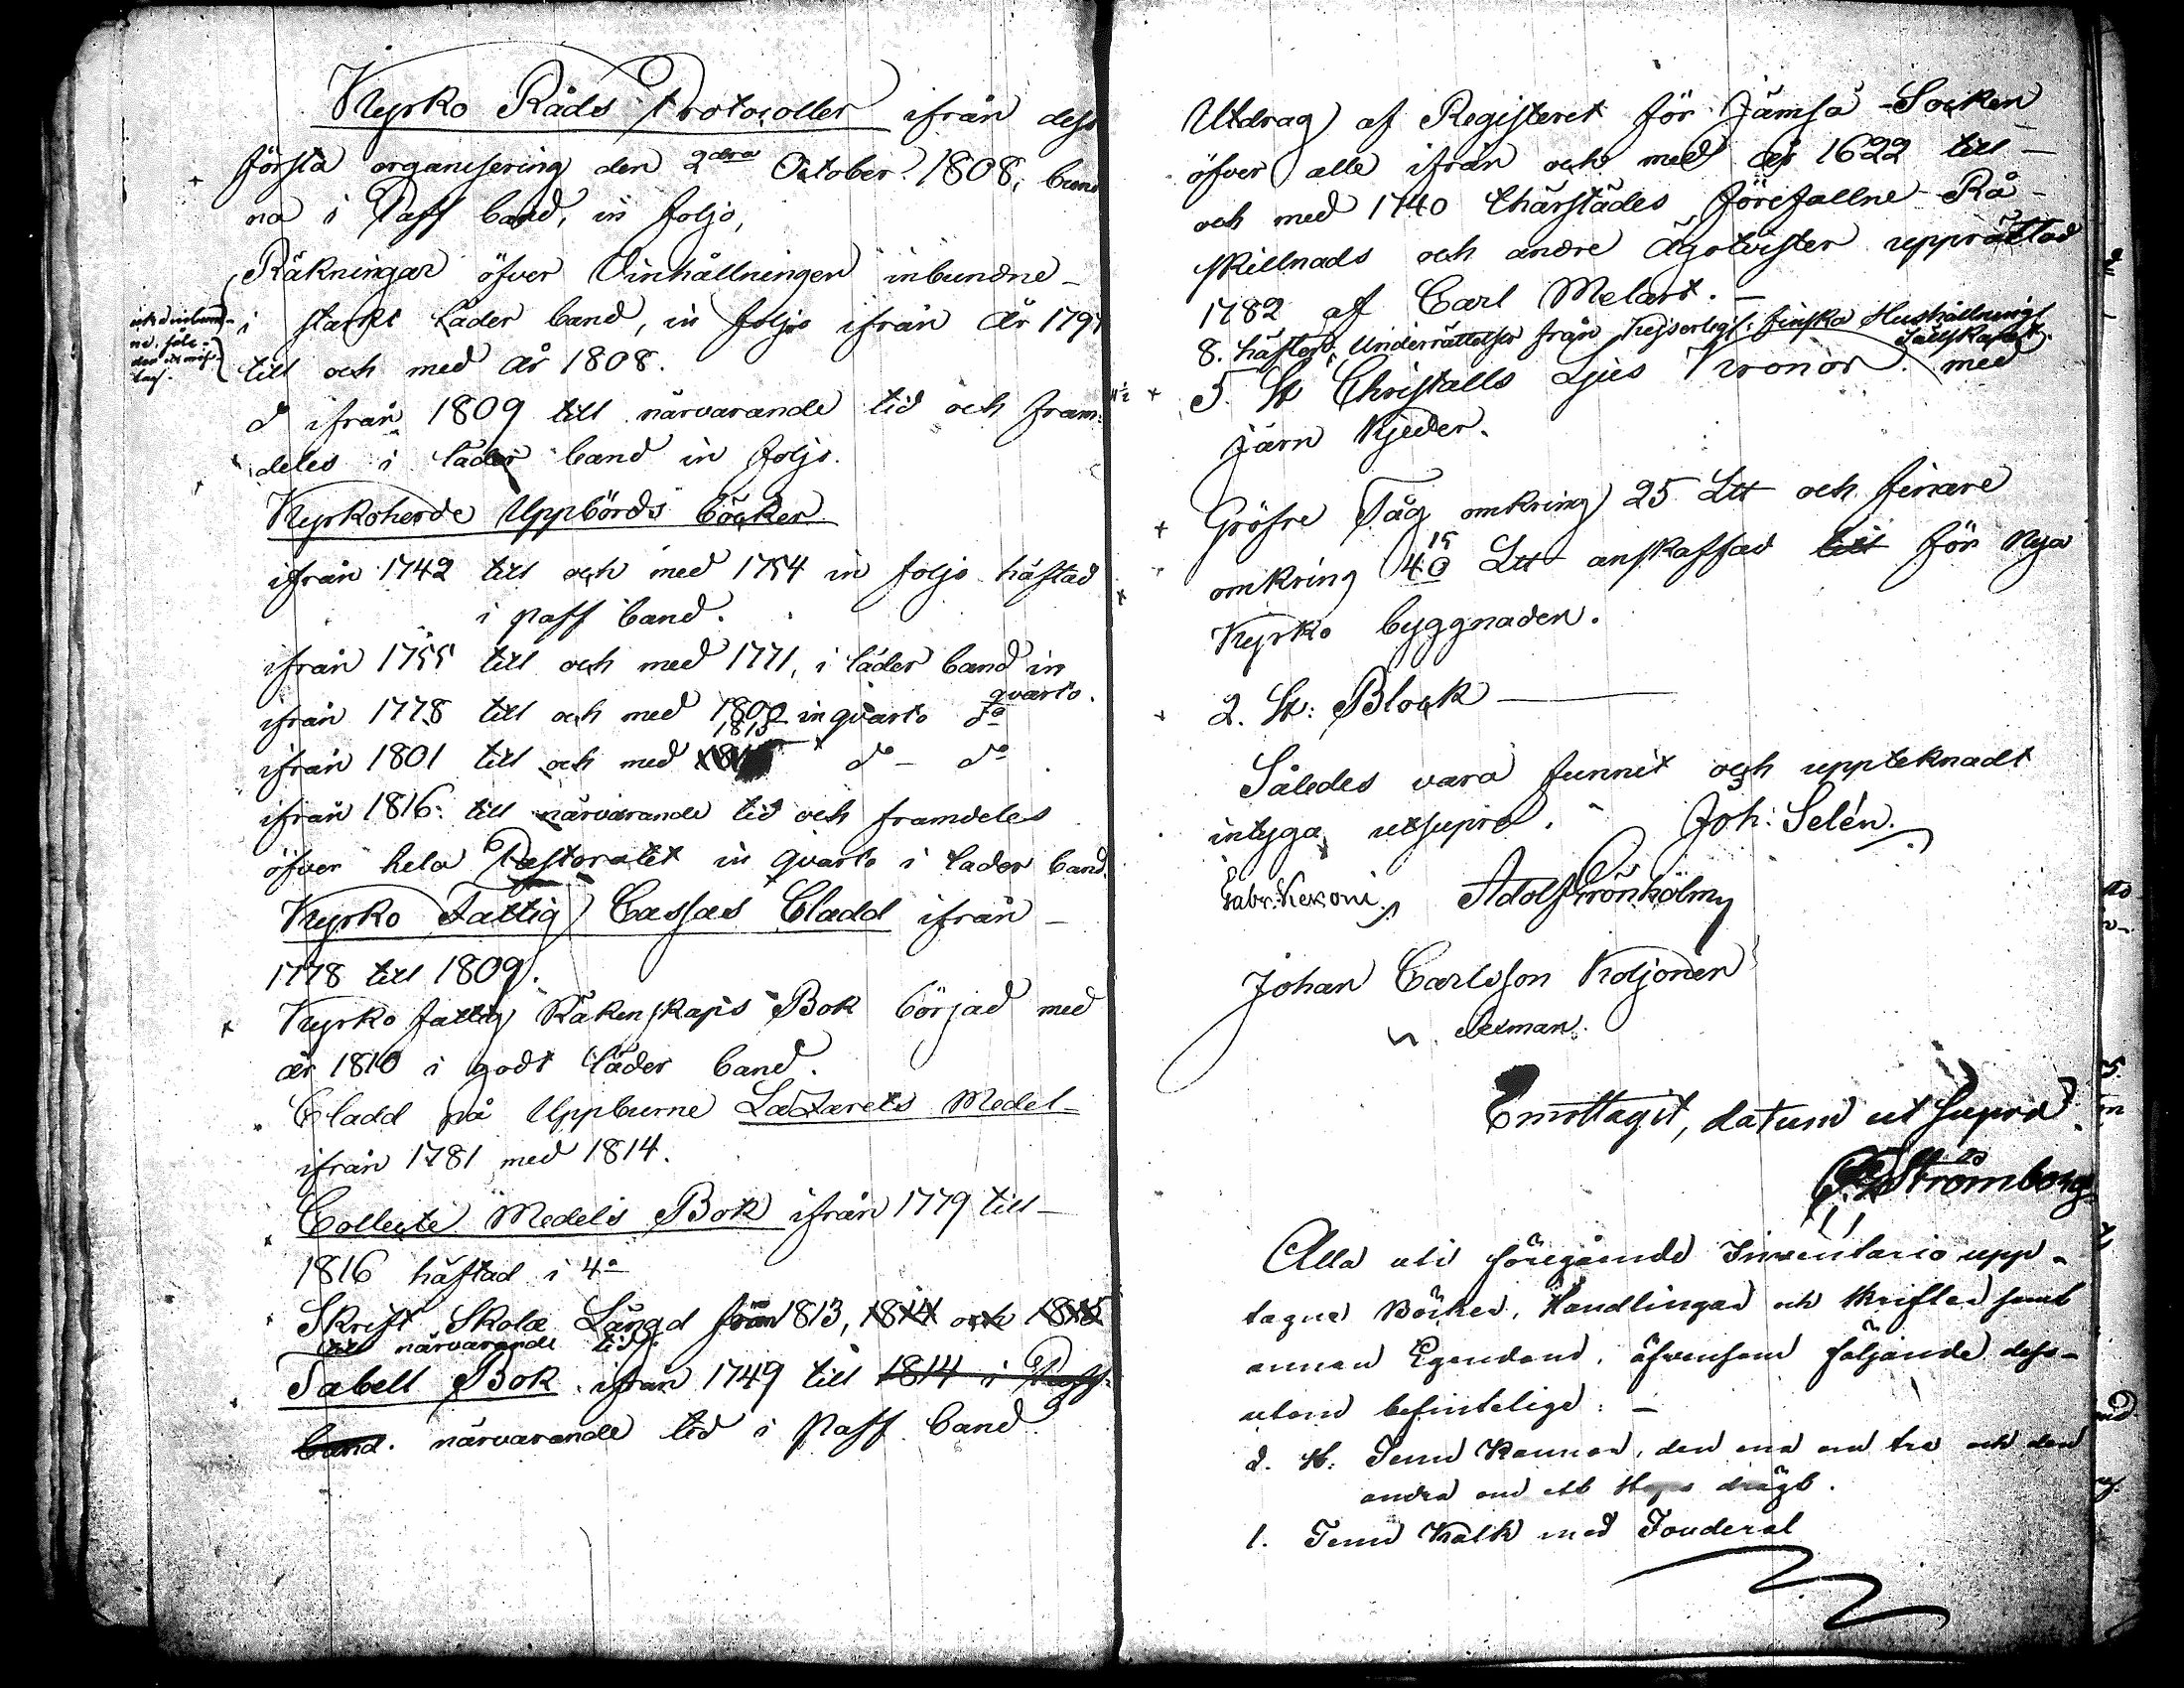 Kyrko Råds Protocoller ifrån dess
första organisering den 2dra October 1808, bun
na i Paff band, in foljo,
Räkningar öfver Vinhållningen inbundne
i starkt läder band, in foljo ifrån år 1794
till och med år 1808.
d ifrån 1809 till närvarande tid och fram:
deles i läder band in foljo.
Kyrkoherde Uppbörds böcker
ifrån 1742 till och med 1754 in foljo häftad
i paff band.
ifrån 1755 till och med 1771, i läder band in
quarto.
ifrån 1778 till och med 1800 in qvarto do
1815
ifrån 1801 till och med do - do
ifrån 1816: till närvarande tid och framdeles
öfver hela Pastoratet in qvarto i läder band.
Kyrko Fattig Cassas Cladd ifrån
1778 till 1809.
Kyrko fattig Räkenskaps Bok börjad med
år 1810 i godt läder band.
Cladd på Uppburne Lazarets Medel
ifrån 1781 med 1814.
Collecte Medels Bok ifrån 1779 till
1816 häftad i 4o
Skrift Skole Längd från 1813, 1814 och 1815
till närvarande tid.
Tabell Bok ifrån 1749 till 1814 i Paff
band. närvarande tid i Paff band.
Utdrag af Registeret för Jämsä Socken
öfver alle ifrån och med år 1622 till
och med 1740 thärstädes förefallne Rå-
skillnads och andre Ägotvister upprättad
1782 af Carl Melart.
8. häften, Underrättelser från Kejserlige: finska Hushållnings
Sällskapet.
5 St Christalls Ljus Kronor med
Järn Kjeder.
Gröfre Tåg omkring 25 Ltt och finare
15
omkring 40 Ltt anskaffad till för Nya
Kyrko byggnaden.
2. St: Block
Således vara funnit och uppteknadt
intyga utsupra. Joh: Selén.
Gabr: Kexoni, Adolf Grönholm
Johan Carlsson Koljonen
Sexman.
Emottagit, datum ut supra.
Strömborg
Alla uti föregående Inventario upp-
tagne Böcker, Handlingar och Skrifter samt
annan Egendom, äfvensom följande dess-
utom befintelige:
2. St: Tenn Kannor, den ena om tre och den
andra om ett Stops drägt.
1. Tenn Kalk med Fouderal